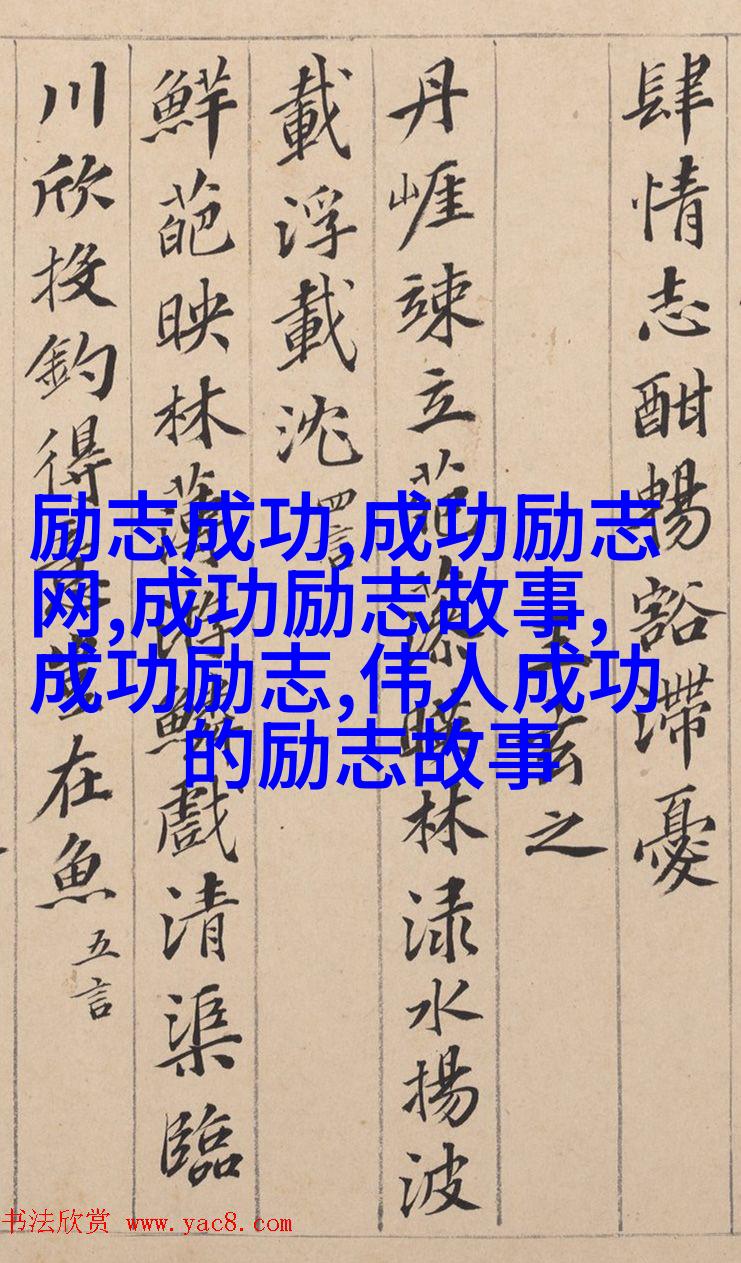 肆情志酣暢豁滯憂
王玄之
丹崕竦立葩藻暎林渌水揚波
載浮載沈 四言
鮮葩映林薄游鱗戲清渠臨
川欣投釣得意豈在魚 五言
励志成功,成功励志
网,成功励志故事,
成功励志,伟人成功
的励志故事
书法欣赏 www.yac8.com